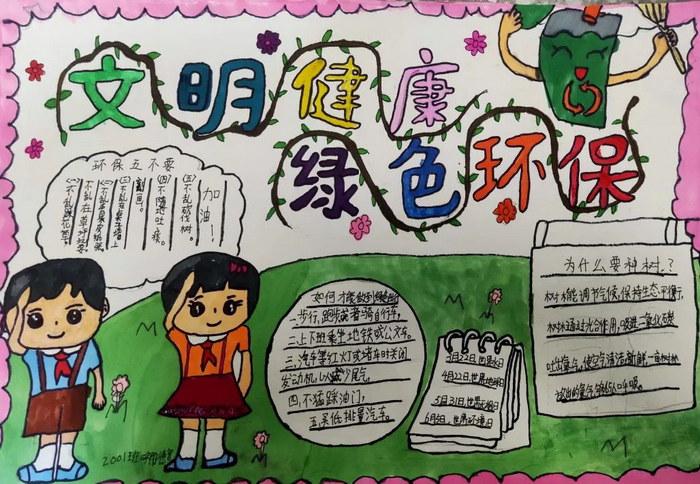 文明健康
绿色环保
环保五不要
加油！
(五)不乱砍伐树。
(四)不随地吐痰。
不乱在草坪
如何才能做到
一步行,跑步或者骑自行车,
二上下班乘坐地铁或公交车。
三,汽车等红灯或堵车时关闭
发动机,以减少尾气,
四,不猛踩油门,
五买低排量汽车。
3月22日
4月22日,世界地球日
5月31日,世界无烟日
6月5日,世界环境日
为什么要种树?
树木能调节气候,保持生态平衡,
树木通过光合作用,吸进二氧化碳
吐出氧气,使空气清洁新鲜一亩树林
放出的氧气够65人呼吸。
2001班